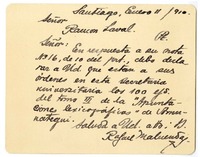 Santiago, Enero 11/910.
Señor
Ramon Laval.
Pte.
Señor: En respuesta a su nota
Nº 16, de 10 del pte., debo decla
rar a Ud. que estan a sus
órdenes en esta Secretaria
universitaria los 100 ejs.
del tomo III de la "Apunta
ciones lexicográficas" de Amu-
nátegui.
Saluda a Ud. ato. S.S.
Rafael Maluenda